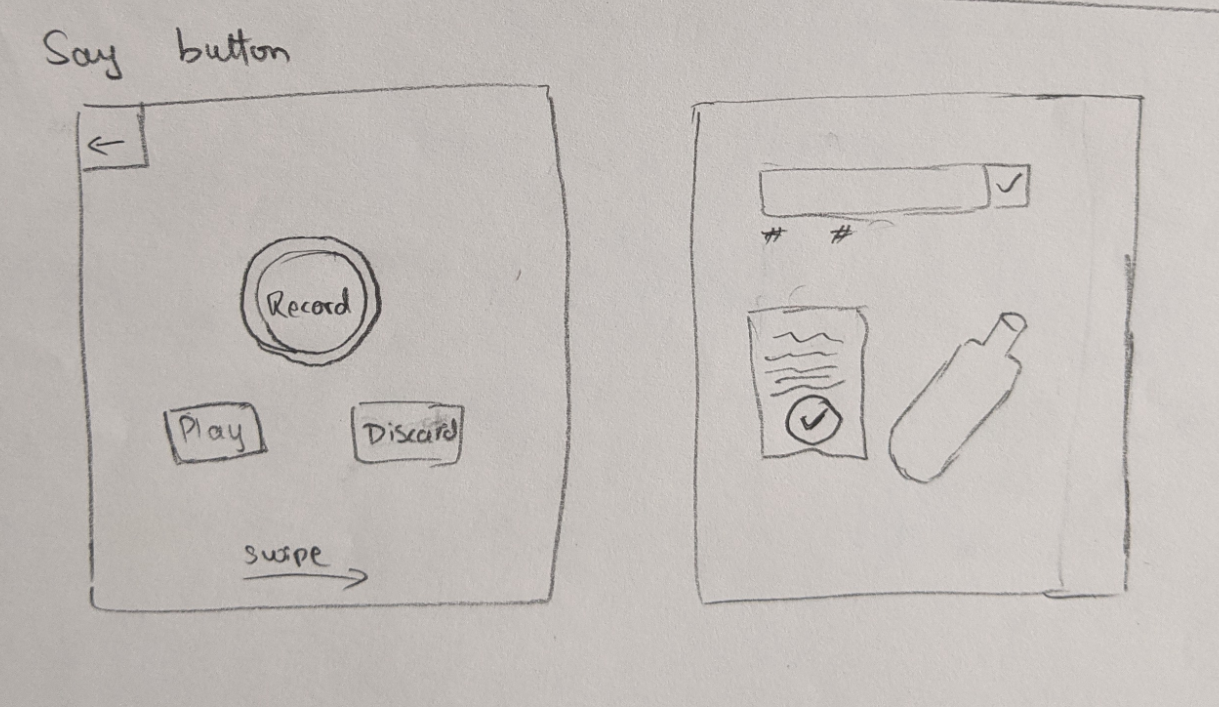 Say button
Record
Play
Discard
swipe
# #